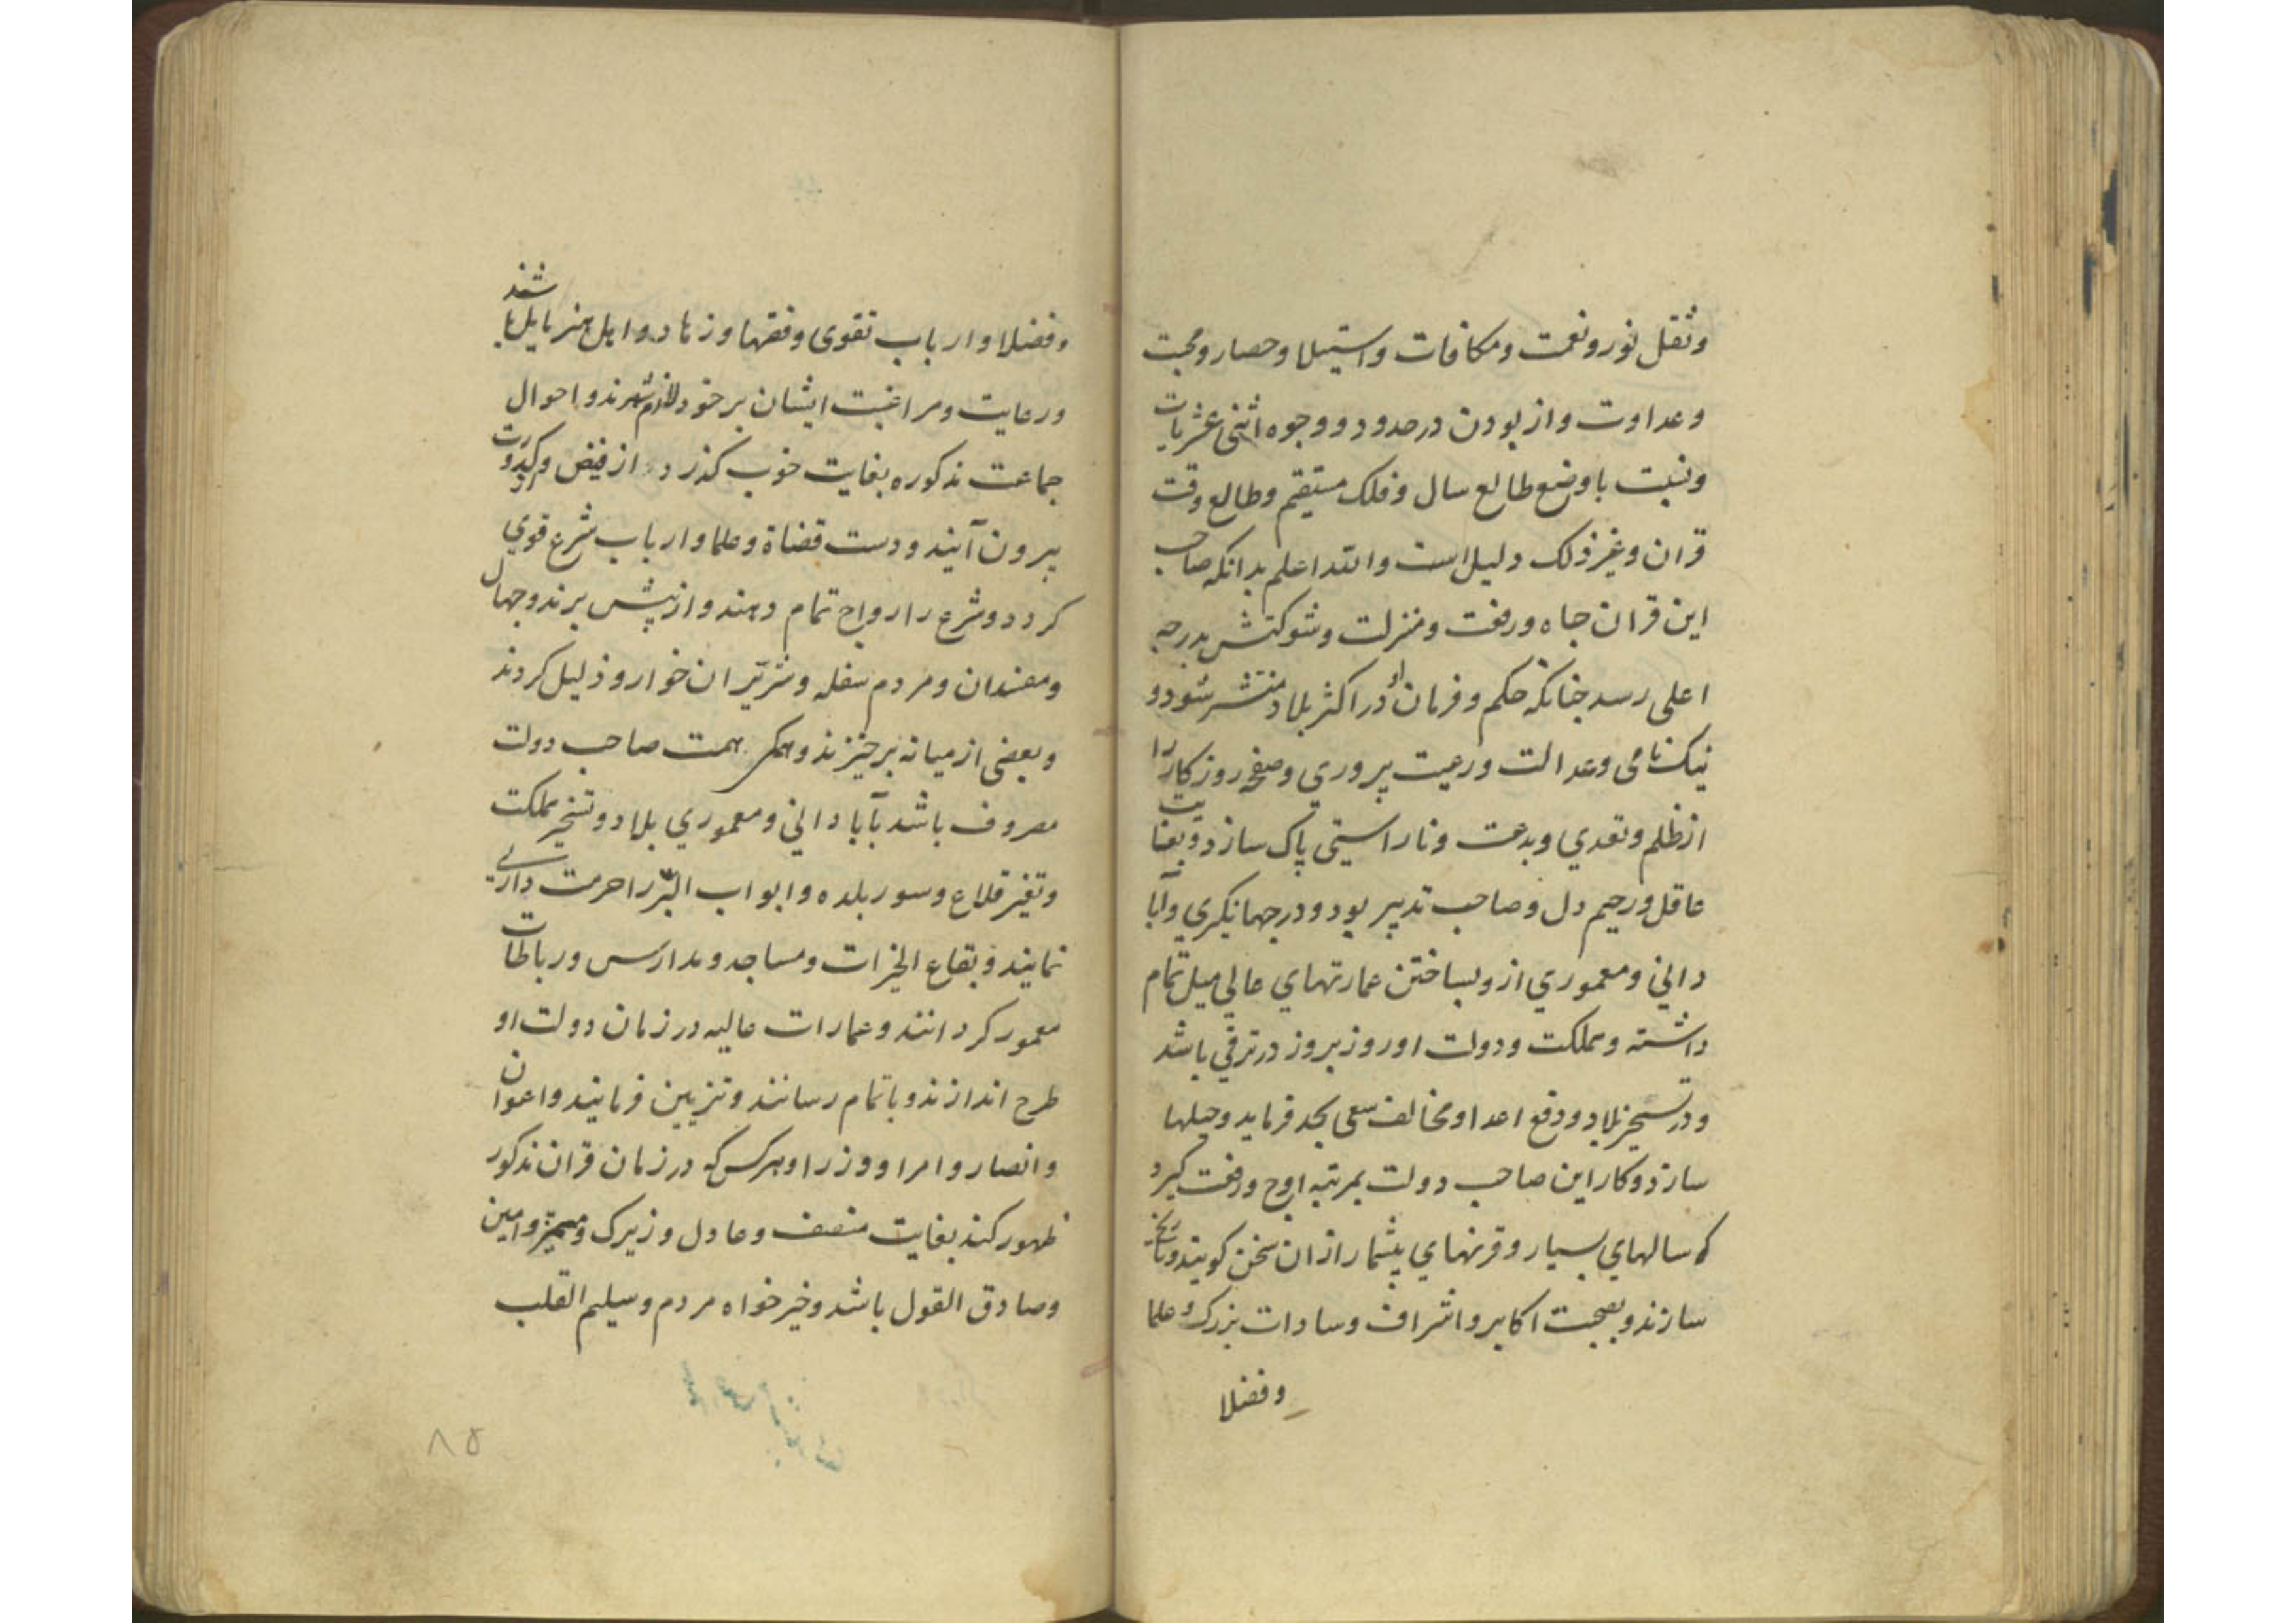 ونقل نور و نعمت و مکافات و استیلا و حصار و محبت
و عداوت و از بودن در حدود و وجوه اثنی عشریات
و نسبت با وضع طالع سال و فلک مستقیم و طالع وقت
قران و غیر ذلک دلیل است والله اعلم بدانکه صاحب
این قران جاه و رفعت و منزلت و شوکتش بدرجه
اعلی رسد چنانکه حکم و فرمان او در اکثر بلاد منتشر شود و
نیک نامی و عدالت و رعیت پروری و صفحه روزکار را
از ظلم و تعدی و بدعت و ناراستی پاک سازد و بغایت
عاقل و رحیم دل و صاحب تدبیر بود و در جهانکیری و آبا
دانی و معموری از و بساختن عمارتهای عالی میل تمام
داشته و مملکت و دولت او روز بروز در ترقی باشد
و در تسخیر بلاد و دفع اعدا و مخالف سعی بجد فرماید و حیلها
سازد و کار این صاحب دولت بمرتبه اوج و رفعت کیرد
که سالهای بسیار و قرنهای بیشمار از ان سخن کویند و تاریخ
سازند و بصحبت اکابر و اشراف و سادات بزرک و علما
و فضلا
و فضلا و ارباب تقوی و فقها و زهاد و اهل هنر مایل باشند
و رعایت و مراغبت ایشان بر خود لازم شمرند و احوال
جماعت مذکوره بغایت خوب کذرد از قبض و کدورت
بیرون آیند و دست قضاة و علما و ارباب شرع قوی
کردد و شرع را رواج تمام دهند و از پیش برند و جهال
و مفسدان و مردم سفله و شریران خوار و ذلیل کردند
و بعضی از میانه برخیزند و همکی همت صاحب دولت
مصروف باشد بآبادانی و معموری بلاد و تسخیر مملکت
و تغیر قلاع و سور بلده و ابواب البر را حرمت داری
نمایند و بقاع الخیرات و مساجد و مدارس و رباطات
معمور کردانند و عمارات عالیه در زمان دولت او
طرح اندازند و باتمام رسانند و تزیین فرمایند و اعوان
و انصار و امرا و وزرا و هرکس که در زمان قران مذکور
ظهور کند بغایت منصف و عادل و زیرک و ممیز و امین
و صادق القول باشد و خیرخواه مردم و سلیم القلب
۸۵